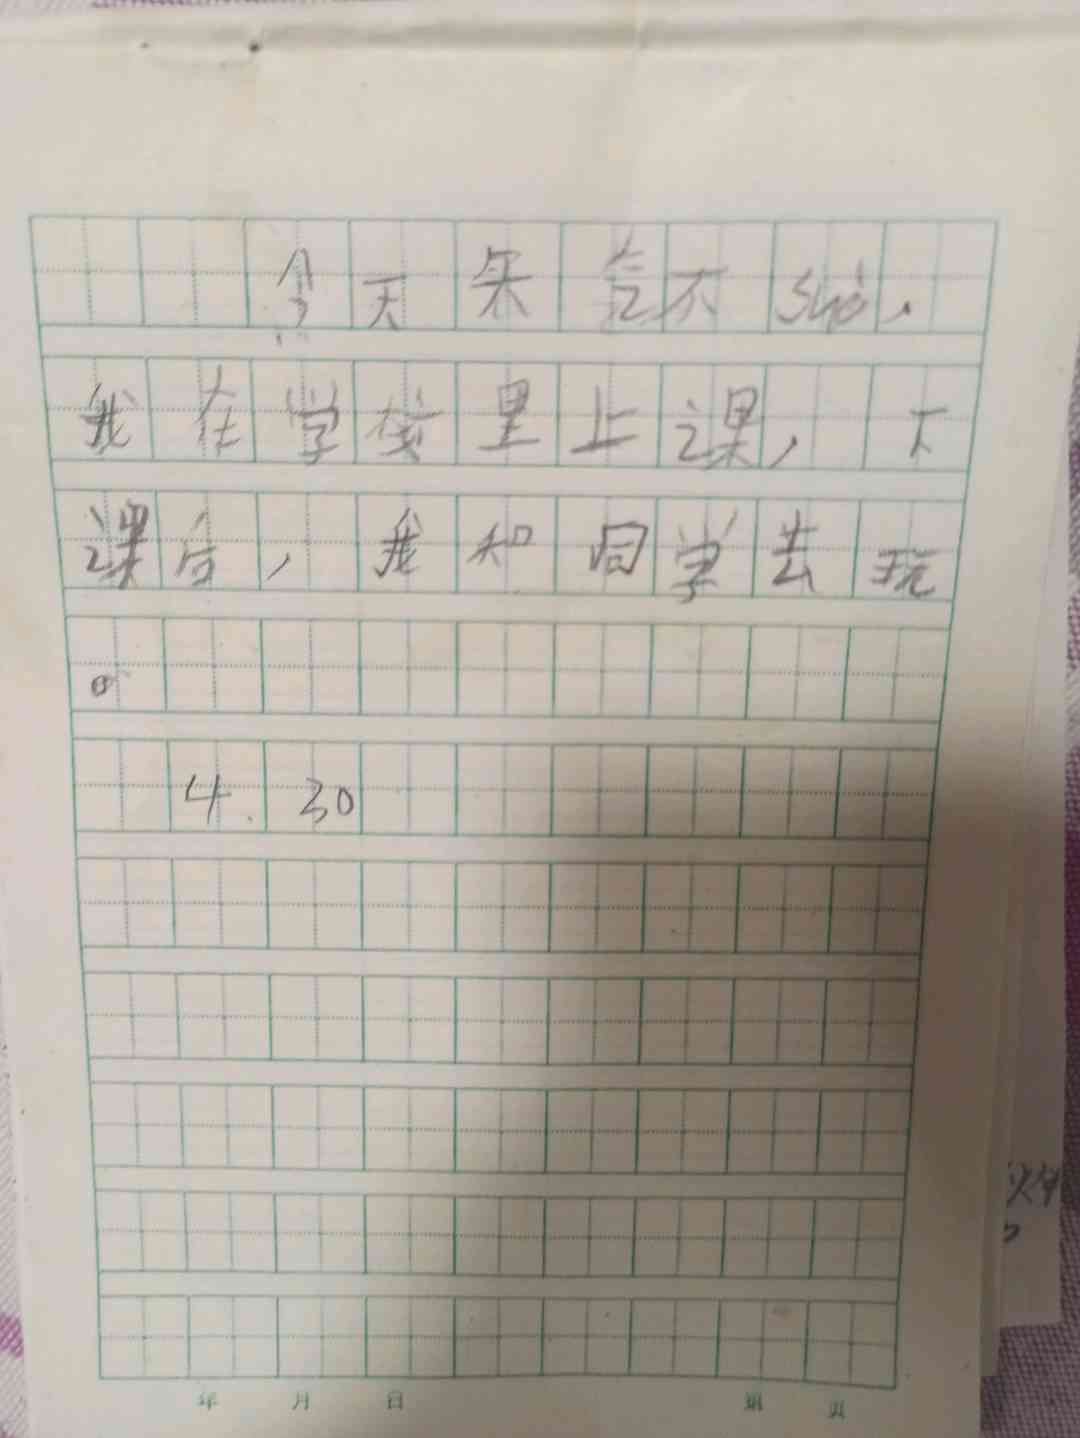 今天朱气不suò，
我在学校里上课，下
课后，我和同学去玩
。
4.30
年 月 日 第 页